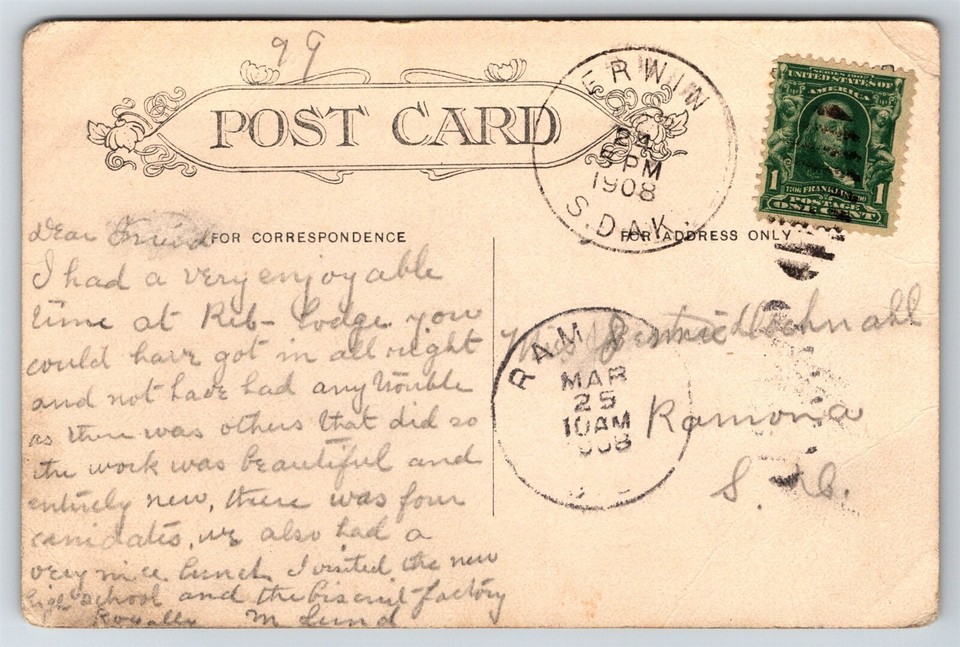 99
POST CARD
ERWIN
24
5 PM
1908
S. DAK.
SERIES 1902
UNITED STATES OF
AMERICA
1 FRANKLIN 1
POSTAGE
ONE CENT
FOR CORRESPONDENCE
FOR ADDRESS ONLY
Dear Friend
I had a very enjoyable
time at Reb- Lodge you
could have got in all right
and not have had any trouble
as there was others that did so
the work was beautiful and
entirely new, there was four
canidates, we also had a
very nice lunch I visited the new
high school and the biscuit factory
Royally M Lund
RAM
MAR
25
10AM
908
Miss
Ramona
S.